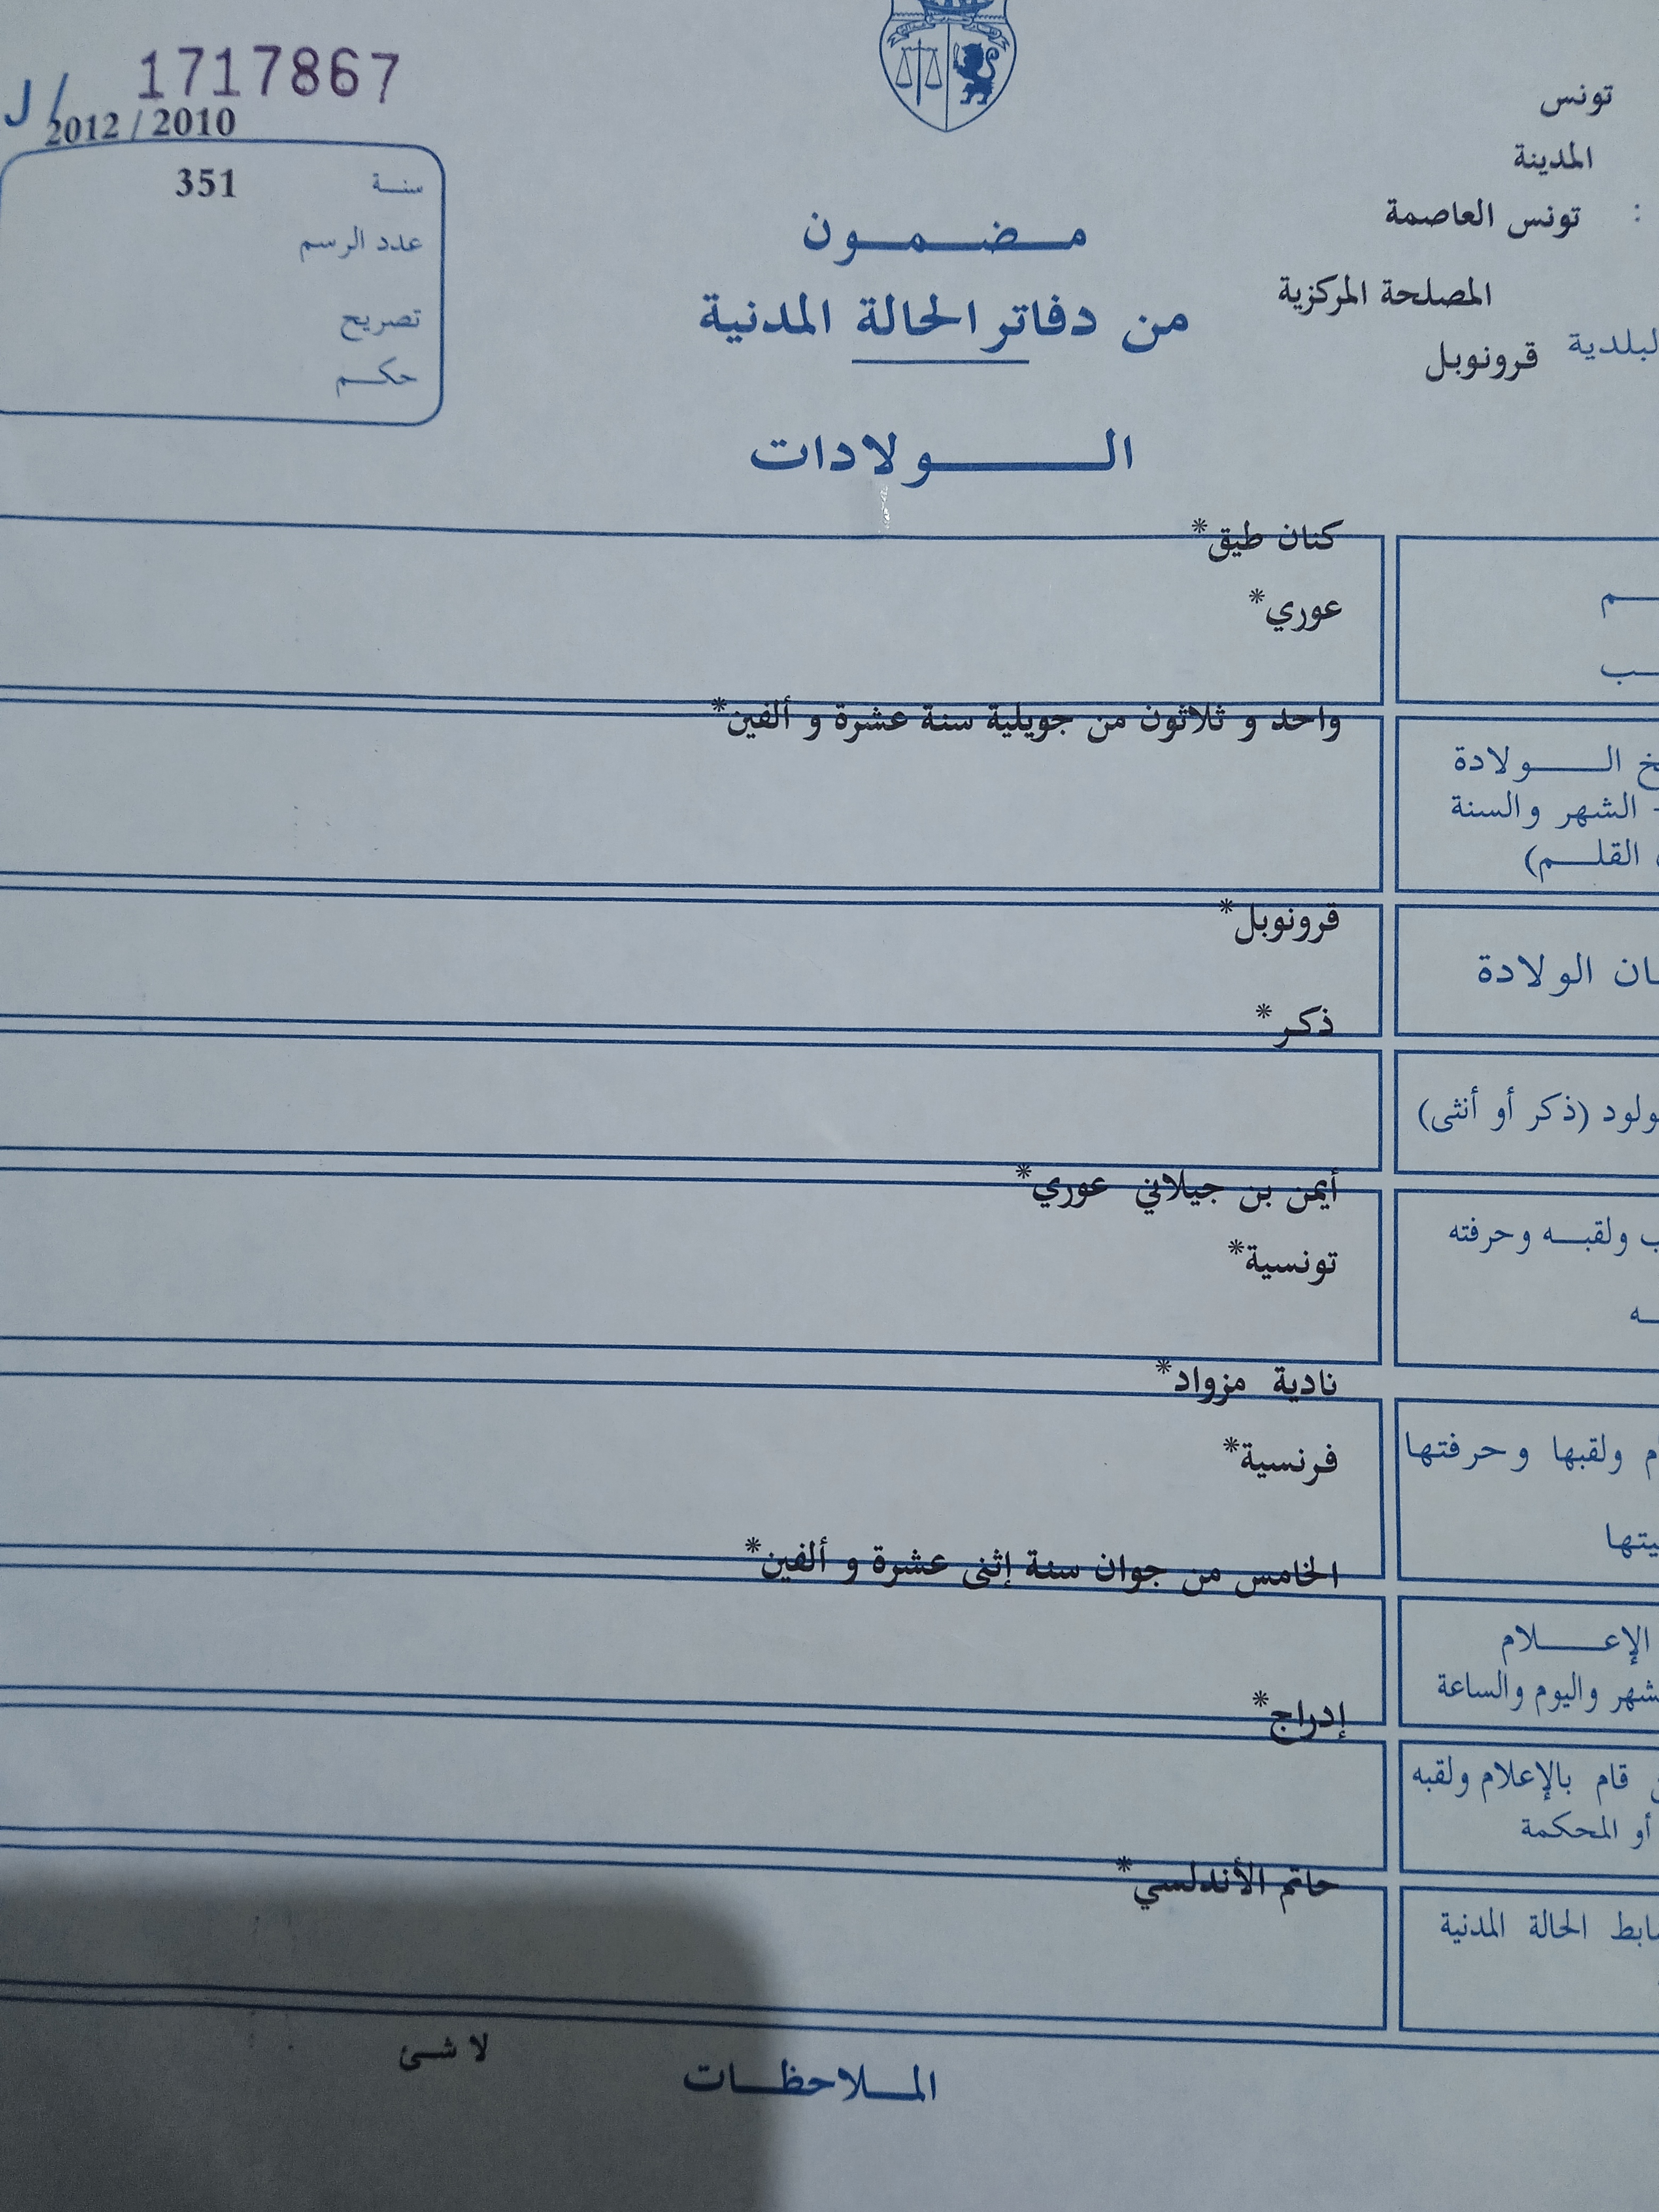 J/ 1717867
2012 / 2010
سنة 351
عدد الرسم
تصريح
حكم
تونس
المدينة
: تونس العاصمة
المصلحة المركزية
قرونوبل
مضمون
من دفاتر الحالة المدنية
الولادات
كنان طيق*
عوري*
واحد و ثلاثون من جويلية سنة عشرة و ألفين*
الولادة
- الشهر والسنة
القلم)
قرونوبل*
ان الولادة
ذكر*
ولود (ذكر أو أنثى)
أيمن بن جيلاني عوري*
ب ولقبه وحرفته
تونسية*
ـه
نادية مزواد*
م ولقبها وحرفتها
فرنسية*
يتها
الخامس من جوان سنة إثنى عشرة و ألفين*
الإعلام
شهر واليوم والساعة
إدراج*
قام بالإعلام ولقبه
أو المحكمة
حاتم الأندلسي*
ابط الحالة المدنية
الملاحظات لا شئ